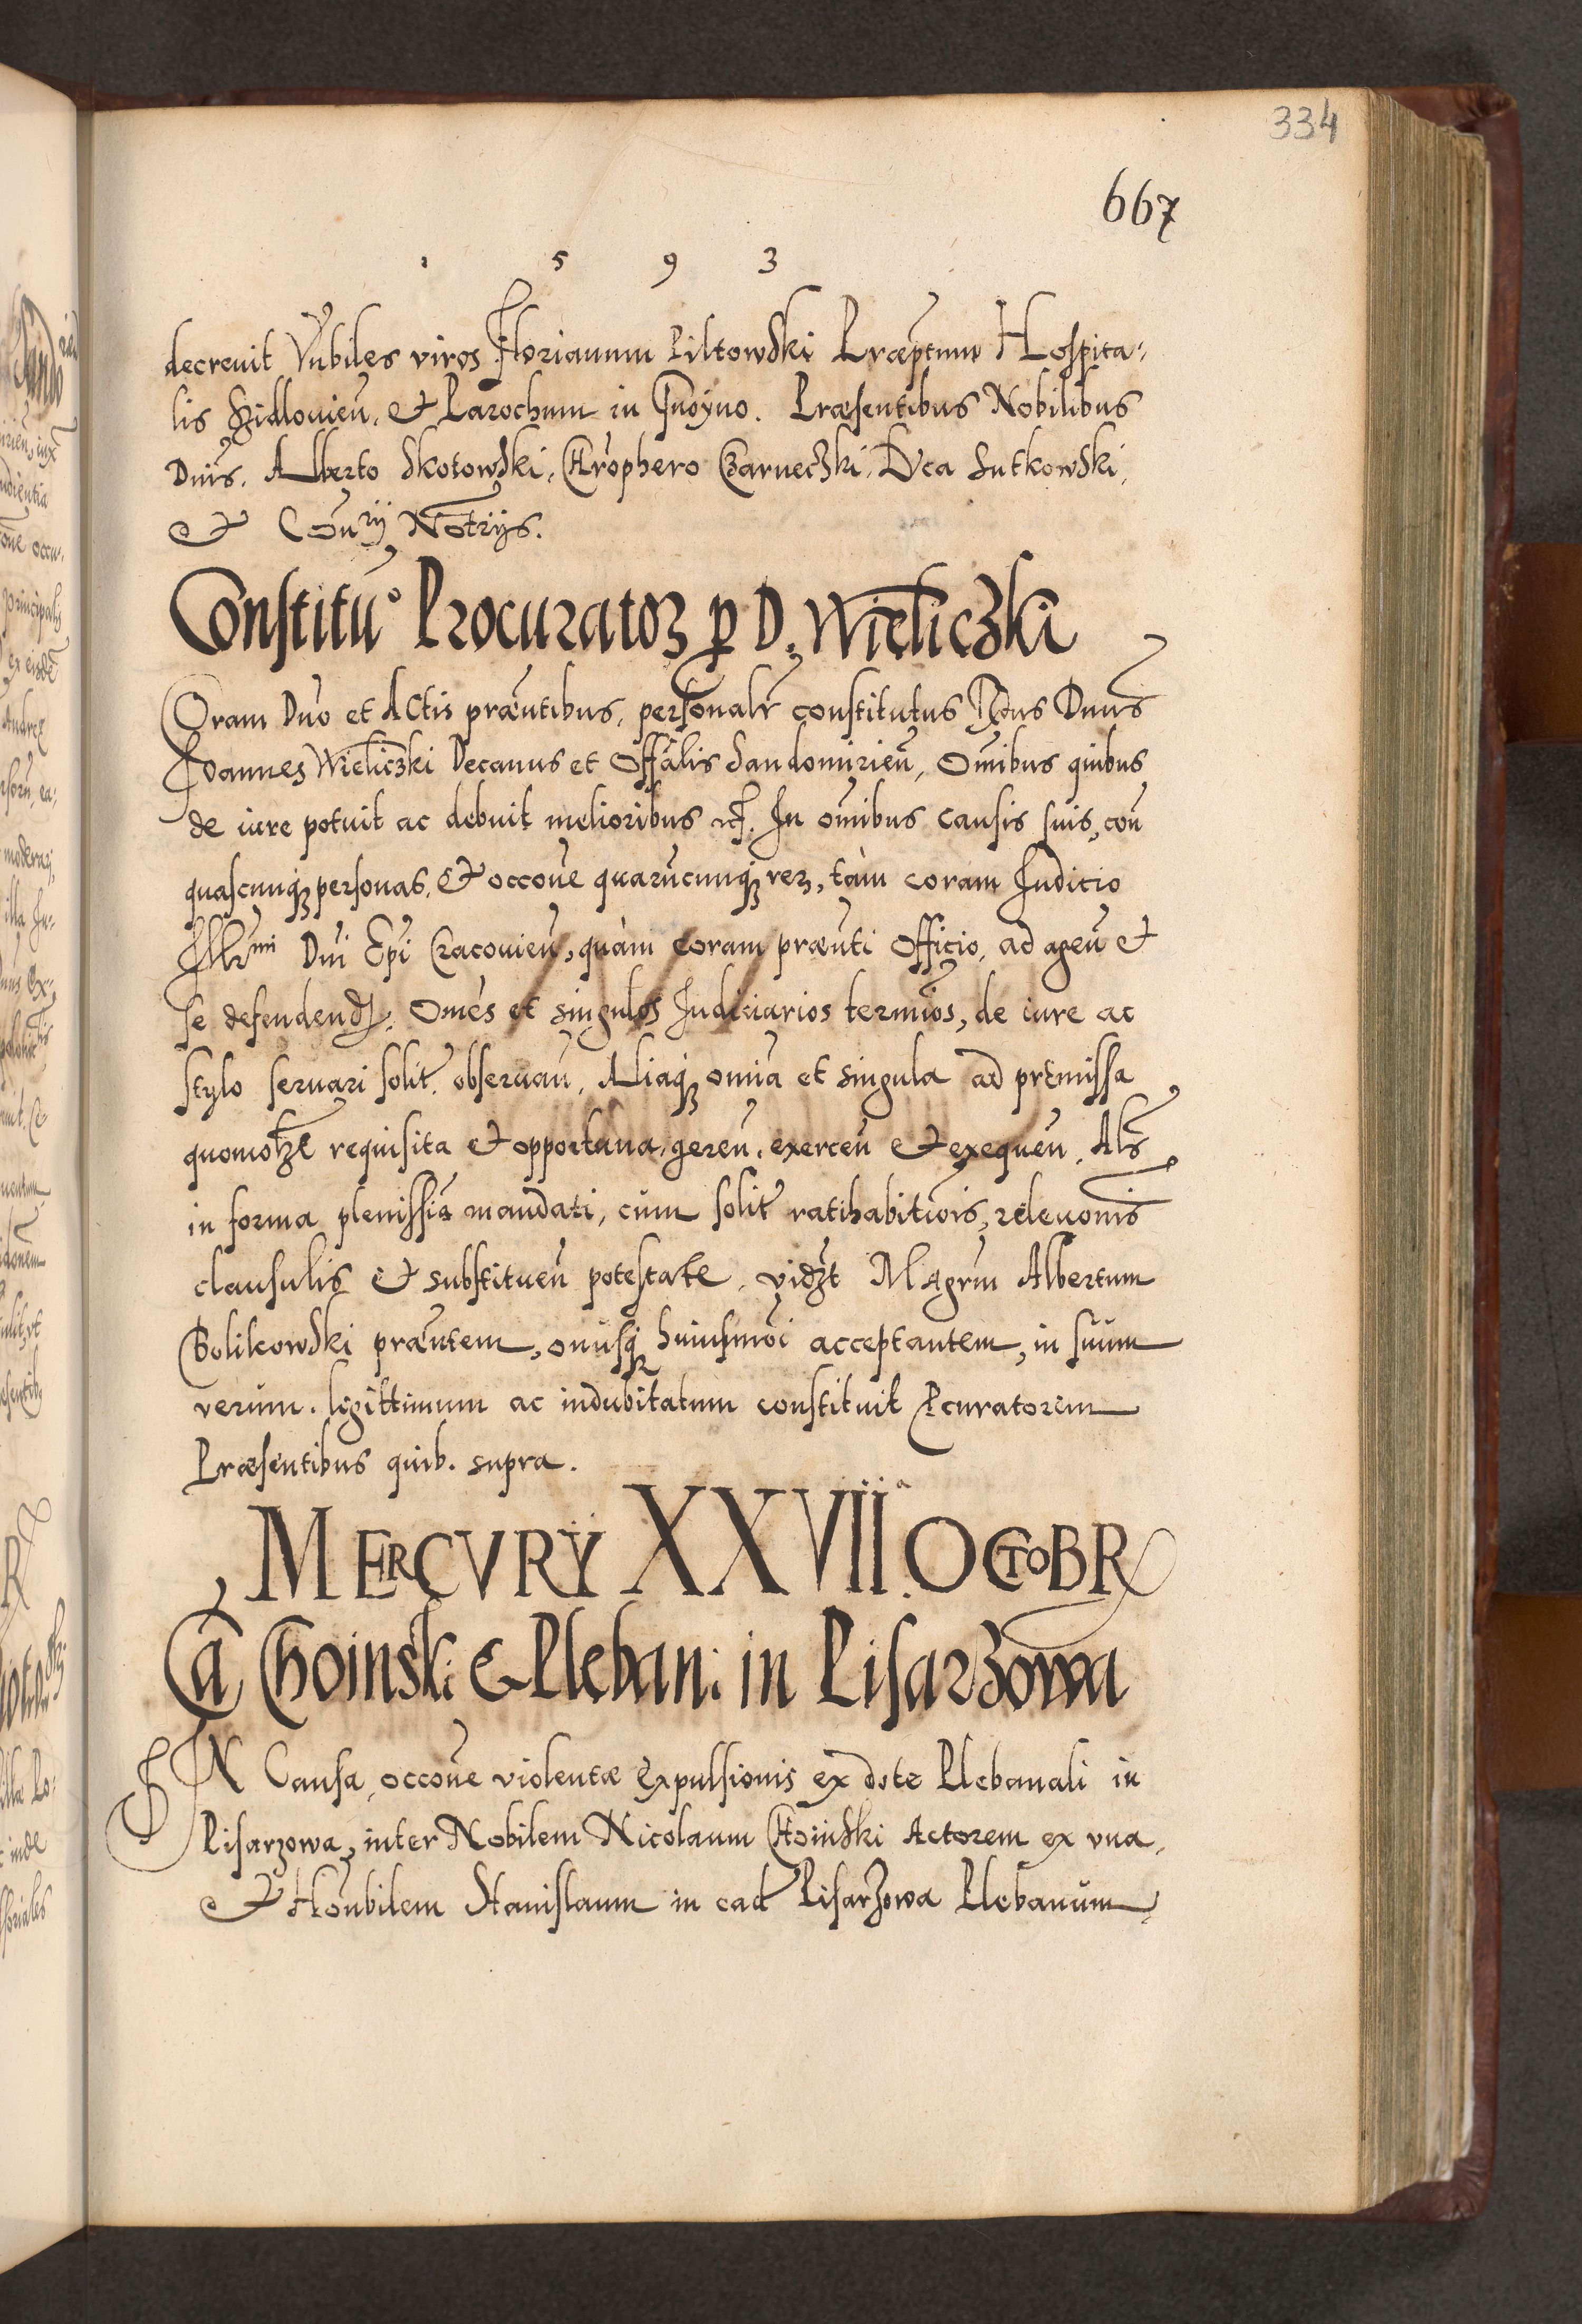 334
667
1 5 9 3
decreuit Vnbiles viros Florianum Piltowski Præptum Hospita-
lis Szidlouien. et Parochum in Gnoyno. Præsentibus Nobilibus
Dnis. Alberto Skotowski, Chrophero Czarneczki, Luca Sutkowski,
et Conrij Notrijs.
Constitu° Procurator p D. Wieliczki
Coram Dno et Actis præntibus, personalr constitutus Rndus Dnus
Joannes Wieliczki Decanus et Offalis Sandomirien, Omibus quibus
de iure potuit ac debuit melioribus etc. In omibus causis suis, con
quascunq personas, et occone quarucunq rer, tam coram Juditio
Illrmi Dni Epi Cracouien, quàm coram prænti Officio, ad agen et
se defendend. Omes et singulos Judiciarios terminos, de iure ac
stylo seruari solit. obseruan, Aliaq omia et singula ad premissa
quomolzt requisita et opportuna, geren, exercen et exequen, Als
in forma plenissia mandati, cum solit ratihabitiois, releuonis
clausulis et substituen potestate, vidzt Magrum Albertum
Golikowski præntem, onusq huiusmoi acceptantem, in suum
verum. legittimum ac indubitatum constituit Pcuratorem
Præsentibus quib. supra.
MERCVRY XXVII OCTOBR
Ca Choinski & Plebani in Pisarzowa
IN Causa, occone violentæ expulsionis ex dote Plebanali in
Pisarzowa, inter Nobilem Nicolaum Choinski Actorem ex vna,
et Honbilem Stanislaum in ead Pisarzowa Plebanum,